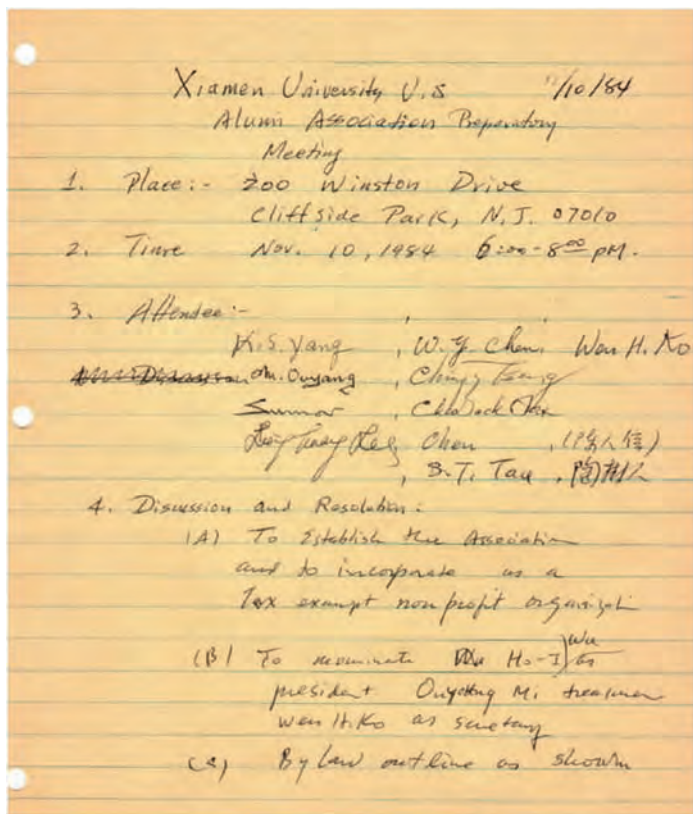 Xiamen University U.S 11/10/84
Alumni Association Preparatory
Meeting
1. Place:- 200 Winston Drive
Cliffside Park, N.J. 07010
2. Time Nov. 10, 1984 6:00-8:00 PM.
3. Attendee:-
K.S. Yang , W.Y. Chen, Wen H. Ko
Mi. Ouyang ,
,
Chen , (人信)
, S.T. Tau , 陶
4. Discussion and Resolution:
(A) To Establish the Association
and to incorporate as a
Tax exempt non profit organizati
(B) To nominate Ho-I Wu as
president Ouyang Mi treasurer
Wen H. Ko as secretary
(C) By law outline as shown